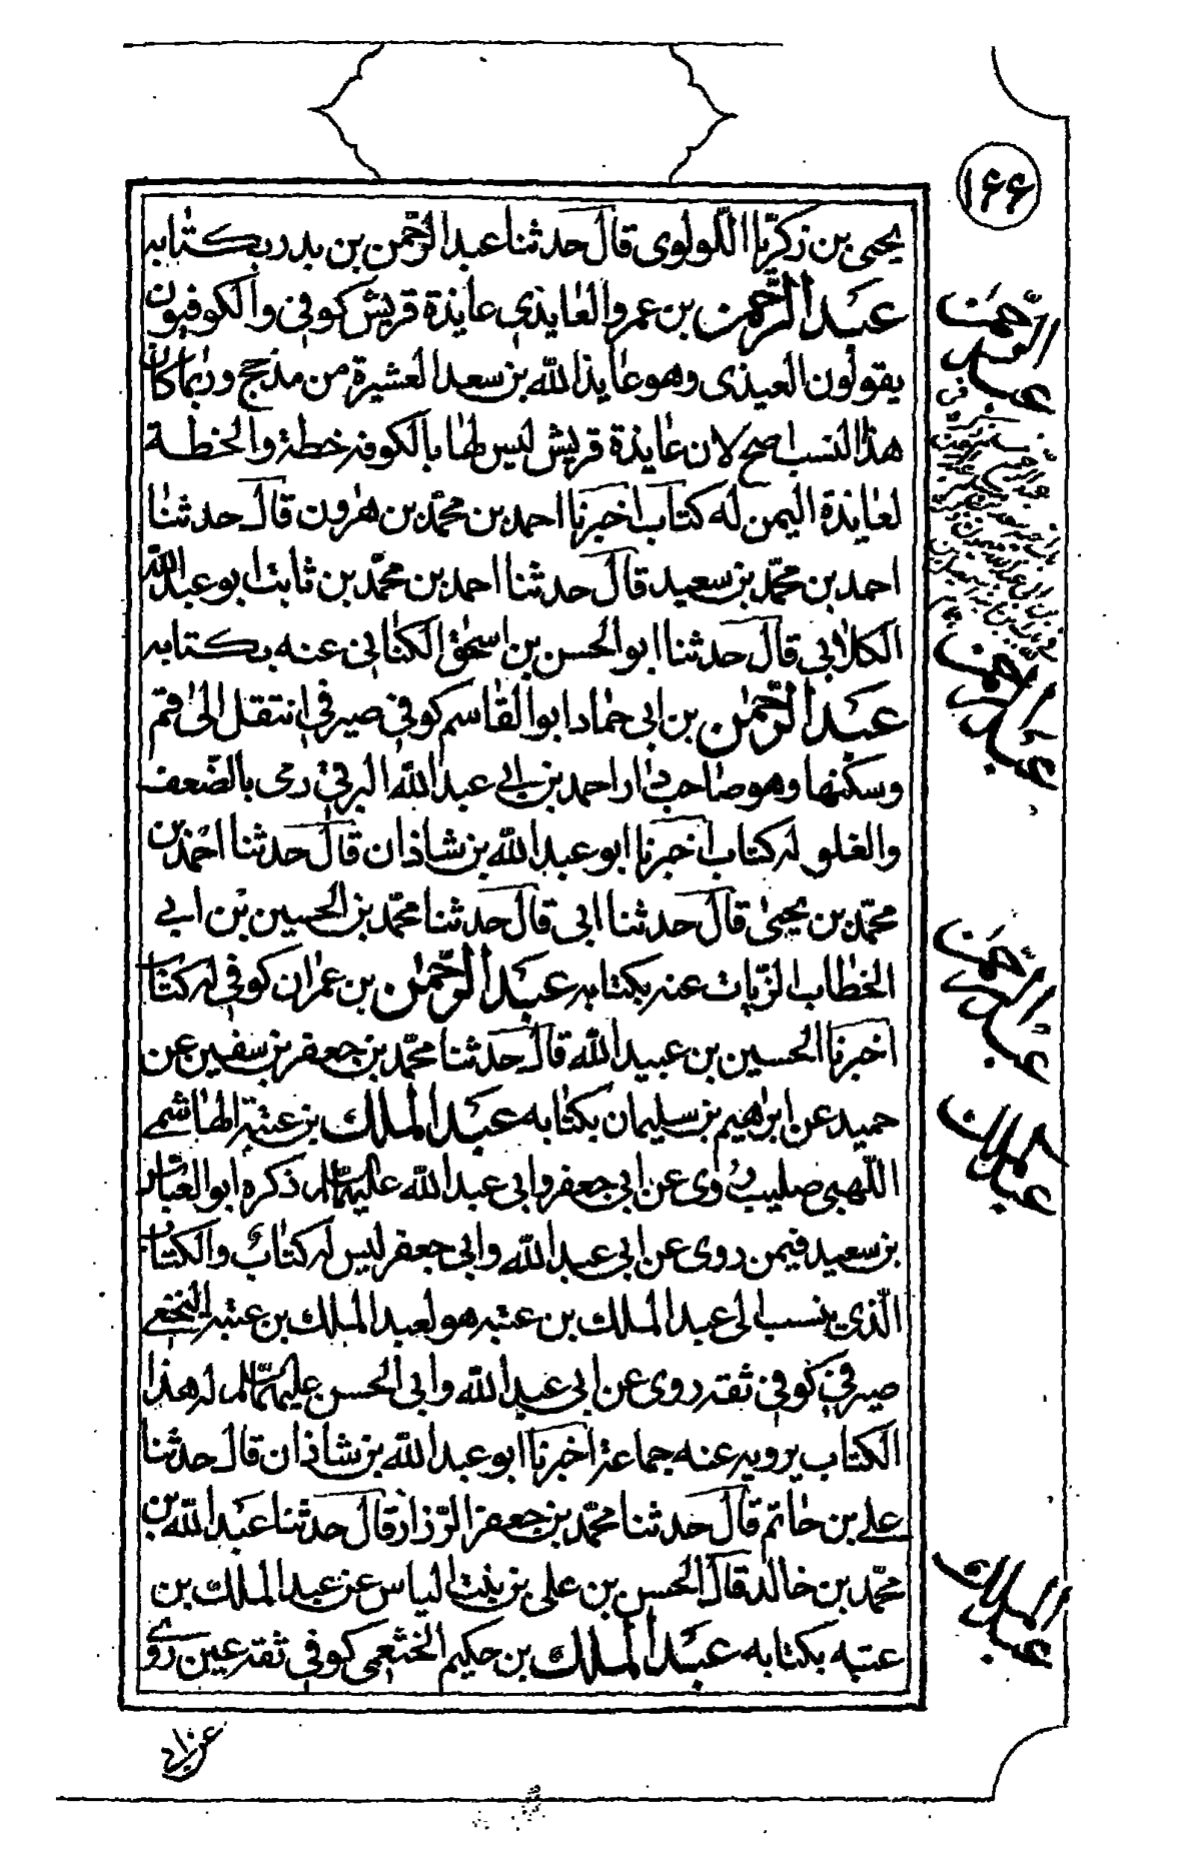 ١٦٦
يحيى بن زكريا اللولوى قال حدثنا عبد الرحمن بن بدر بكتابه
عبد الرحمن بن عمرو العايذى عايذة قريش كوفى والكوفيون
يقولون العيذى وهو عايذ الله بن سعد العشيرة من مذحج وربما كان
هذا النسب اصح لان عايذة قريش ليس لها بالكوفه خطة والخطة
لعايذة اليمن له كتاب اخبرنا احمد بن محمد بن هرون قال حدثنا
احمد بن محمد بن سعيد قال حدثنا احمد بن محمد بن ثابت ابو عبد الله
الكلابى قال حدثنا ابو الحسن بن اسحق الكنانى عنه بكتابه
عبد الرحمن بن ابى حماد ابو القاسم كوفى صيرفى انتقل الى قم
وسكنها وهو صاحب دار احمد بن ابى عبد الله البرقى رمى بالضعف
والغلو له كتاب اخبرنا ابو عبد الله بن شاذان قال حدثنا احمد بن
محمد بن يحيى قال حدثنا ابى قال حدثنا محمد بن الحسين بن ابى
الخطاب الزيات عنه بكتابه عبد الرحمن بن عمران كوفى له كتاب
اخبرنا الحسين بن عبيد الله قال حدثنا محمد بن جعفر بن سفين عن
حميد عن ابراهيم بن سليمان بكتابه عبد الملك بن عتبة الهاشمى
اللهبى صليب روى عن ابى جعفر وابى عبد الله عليهما السلام ذكره ابو العباس
بن سعيد فيمن روى عن ابى عبد الله وابى جعفر ليس له كتاب والكتاب
الذى ينسب الى عبد الملك بن عتبه هو لعبد الملك بن عتبه النخعى
صيرفى كوفى ثقه روى عن ابى عبد الله وابى الحسن عليهما السلام له هذا
الكتاب يرويه عنه جماعة اخبرنا ابو عبد الله بن شاذان قال حدثنا
على بن حاتم قال حدثنا محمد بن جعفر الرزاز قال حدثنا عبد الله بن
محمد بن خالد قال الحسن بن على بن بنت الياس عن عبد الملك بن
عتبه بكتابه عبد الملك بن حكيم الخثعمى كوفى ثقه عين روى
عن ابى
عبد الرحمن
عبد الرحمن
عبد الرحمن
عبد الملك
عبد الملك